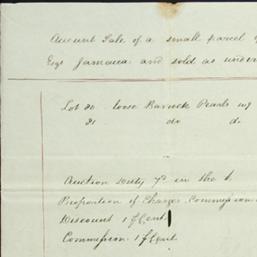 Account Sale of a small parcel
Esqr Jamaica and sold as under
Lot 20 loose Pearls
21 do do
Auction Duty in the
Proportion of Charges Commission
Discount 1 ⅌ Cent
Commission 1 ⅌ Cent